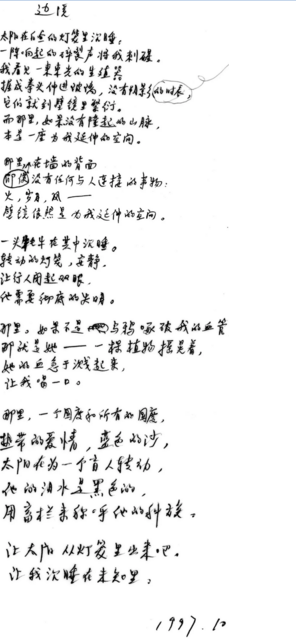 边境
太阳在白色的灯笼里沉睡：
一阵响起的碎裂声将我刺破。
我看见一束束光的生殖器
撞成骨头伸进玻璃，没有阴影的时辰，
它们就到壁镜里繁衍。
而那里，如果没有隆起的山脉，
本是一座为我延伸的空间。
那里，在墙的背面
即使没有任何与人连接的事物：
火，岁月，风——
壁镜依然是为我延伸的空间。
一头牛在其中沉睡。
转动的灯笼，安静，
让行人闭起双眼，
他需要彻底的失明。
那里，如果不是与鸦啄破我的血管
那就是她——一棵植物摇晃着，
她的血急于溅起来，
让我喝一口。
那里，一个国度和所有的国度，
热带的爱情，蓝色的沙，
太阳在为一个盲人转动，
他的泪水是黑色的，
用来称呼他的种族。
让太阳从灯笼里出来吧。
让我沉睡在未知里：
1997.10